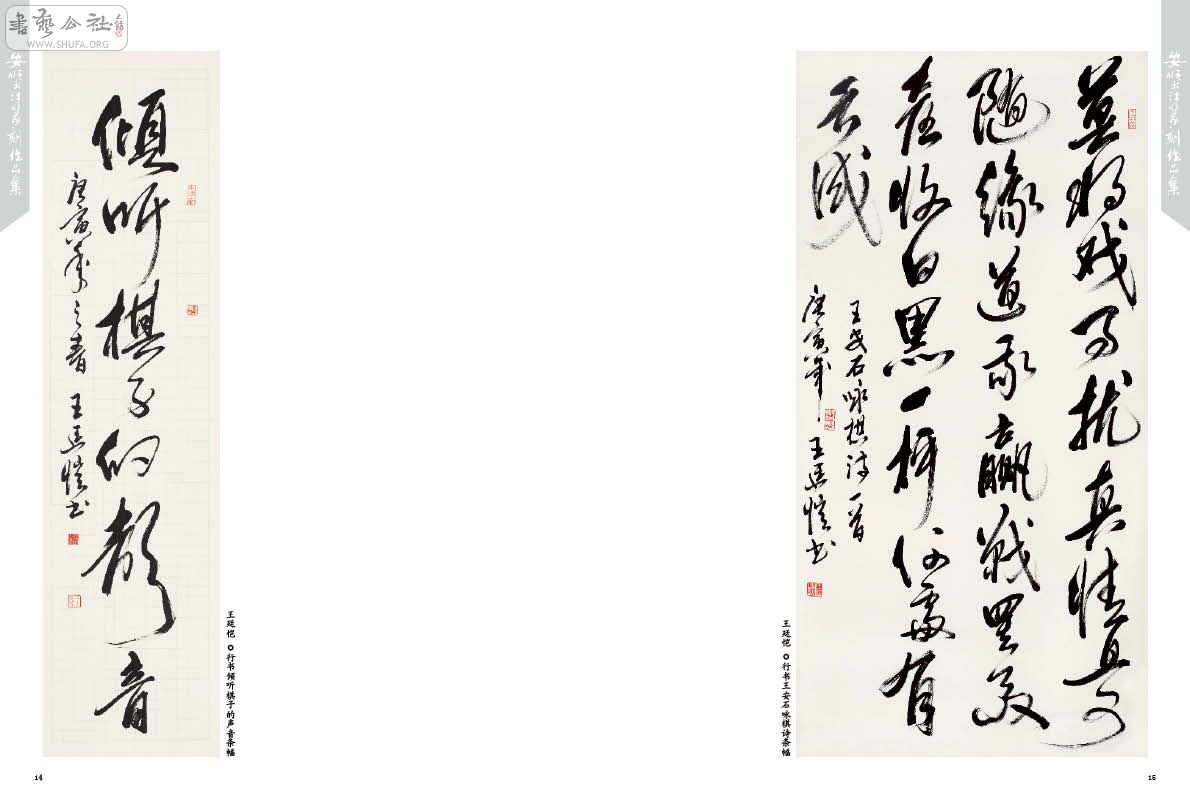 書藝公社
WWW.SHUFA.ORG
安順书法篆刻作品集
傾听棋子的聲音
庚寅年之春 王廷愷书
王廷恺 行书倾听棋子的声音条幅
14
安順书法篆刻作品集
莫将戏事扰真情且可
随缘道我赢戰罢两
奁收白黑一枰何處有
亏成
王安石咏棋诗一首
庚寅年 王廷愷书
王廷恺 行书王安石咏棋诗条幅
15